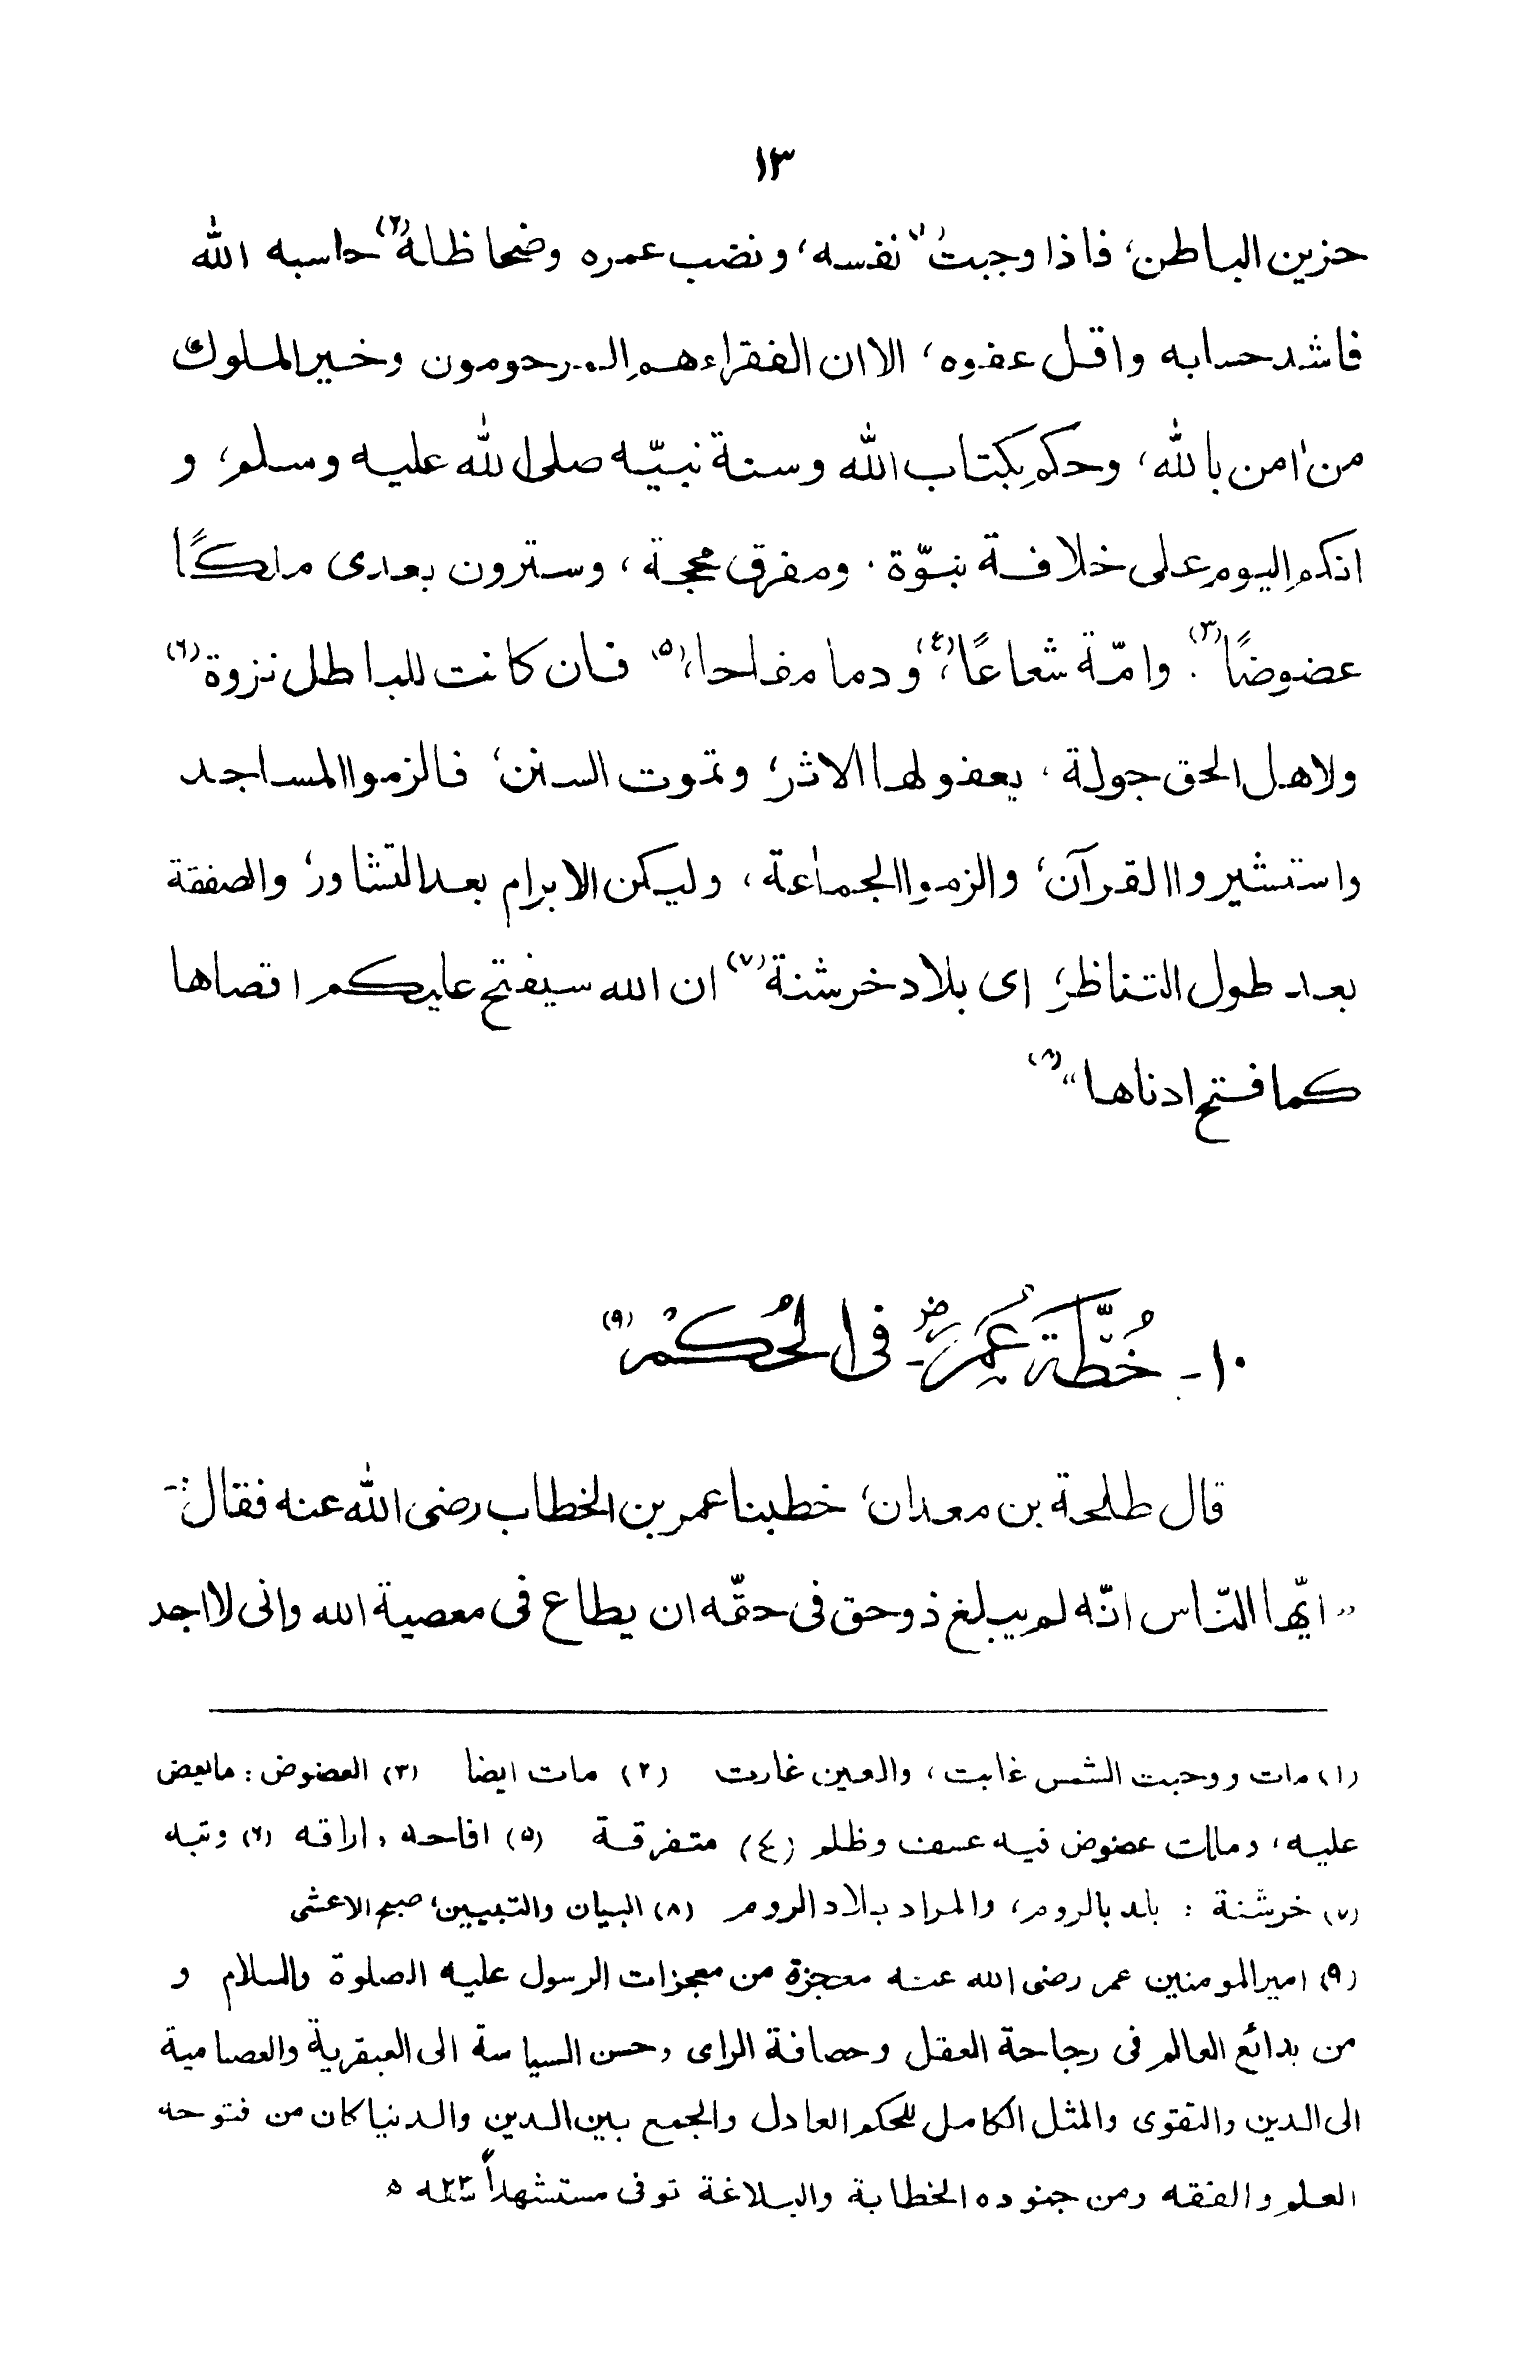 ١٣
حزين الباطن، فاذا وجبت (١) نفسه، ونضب عمره وضحا ظله (٢) حاسبه الله
فاشد حسابه واقل عفوه، الا ان الفقراء هم المرحومون وخير الملوك
من اٰمن بالله، وحكم بكتاب الله وسنة نبيّه صلى الله عليه وسلم، و
انكم اليوم على خلافة نبوّة. ومفرق محجة، وسترون بعدى ملكًا
عضوضًا (٣). وامّة شعاعًا، (٤) ودما مفاحا، (٥) فان كانت للباطل نزوة (٦)
ولاهل الحق جولة، يعفو لها الاثر، وتموت السنن، فالزموا المساجد
واستشيروا القرآن، والزموا الجماعة، وليكن الابرام بعد التشاور، والصفقة
بعد طول التناظر، اى بلاد خرشنة (٧) ان الله سيفتح عليكم اقصاها
كما فتح ادناها" (٨)
١٠- خُطَّة عُمَر رضـ فى الحُكْم (٩)
قال طلحة بن معدان، خطبنا عمر بن الخطاب رضى الله عنه فقال:-
"ايّها النّاس انّه لم يبلغ ذو حق فى حقّه ان يطاع فى معصية الله وانى لا اجد
(١) مات ووجبت الشمس غابت، والعين غارت (٢) مات ايضا (٣) العضوض: مايعض
عليه، وملك عضوض فيه عسف وظلم (٤) متفرقة (٥) افاحه، اراقه (٦) وثبه
(٧) خرشنة: بلد بالروم، والمراد بلاد الروم (٨) البيان والتبيين، صبح الاعشى
(٩) امير المومنين عمر رضى الله عنه معجزة من معجزات الرسول عليه الصلوة والسلام و
من بدائع العالم فى رجاحة العقل وحصافة الراى وحسن السياسة الى العبقرية والعصامية
الى الدين والتقوى والمثل الكامل للحكم العادل والجمع بين الدين والدنيا كان من فتوحه
العلم والفقه ومن جنوده الخطابة والبلاغة توفى مستشهداً سنه ٢٣ ه